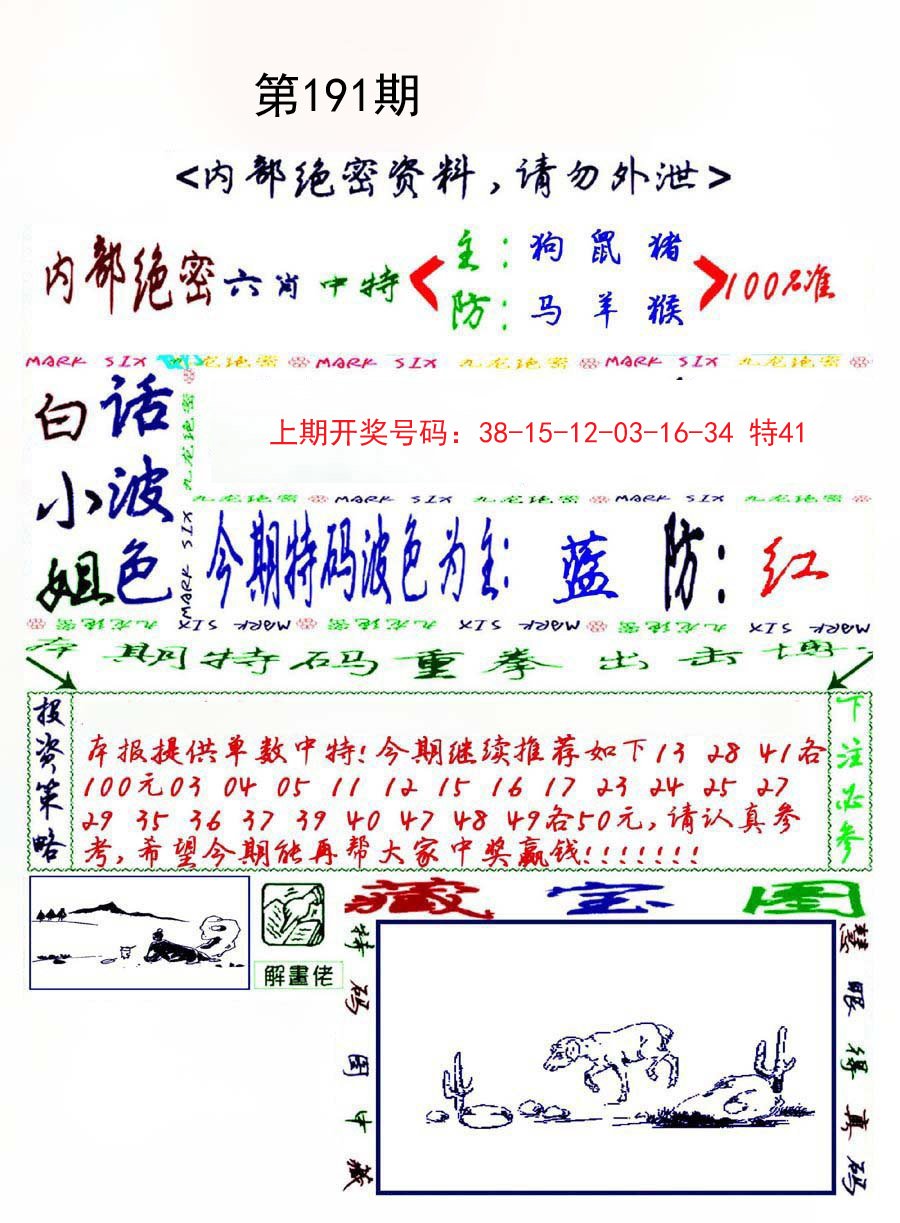 第191期
<内部绝密资料,请勿外泄>
内部绝密六肖中特
主:狗 鼠 猪
防:马 羊 猴
100%准
MARK SIX 九龙绝密 MARK SIX 九龙绝密 MARK SIX 九龙绝密
白小姐
话波色
九龙绝密 MARK SIX
上期开奖号码：38-15-12-03-16-34 特41
九龙绝密 MARK SIX 九龙绝密 MARK SIX 九龙绝密
今期特码波色为主: 蓝 防: 红
九龙绝密 MARK SIX 九龙绝密 MARK SIX 九龙绝密 MARK SIX
本期特码重拳出击博
投资策略
本报提供单数中特!今期继续推荐如下13 28 41各
100元03 04 05 11 12 15 16 17 23 24 25 27
29 35 36 37 39 40 47 48 49各50元,请认真参
考,希望今期能再帮大家中奖赢钱!!!!!!!
下注必参
解畫佬
藏宝图
特码图中藏
慧眼得真码